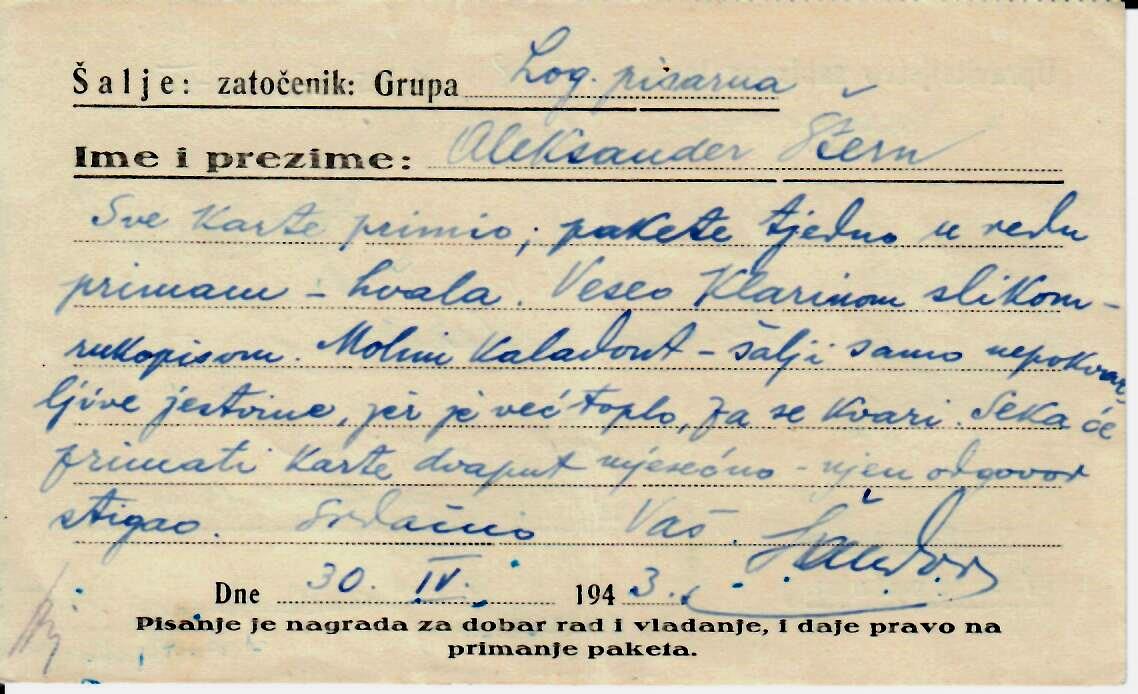 Šalje: zatočenik: Grupa Log. pisarna
Ime i prezime: Aleksander Štern
Sve karte primio, pakete tjedno u redu
primam - hvala. Veseo Klarinom slikom-
rukopisom. Molim Kaladont - šalji samo nepokvar-
ljive jestvine, jer je već toplo, pa se kvari. Seka će
primati karte dvaput mjesečno - njen odgovor
stigao. Srdačno Vaš Šandor
Dne 30. IV. 1943.
Pisanje je nagrada za dobar rad i vladanje, i daje pravo na
primanje paketa.